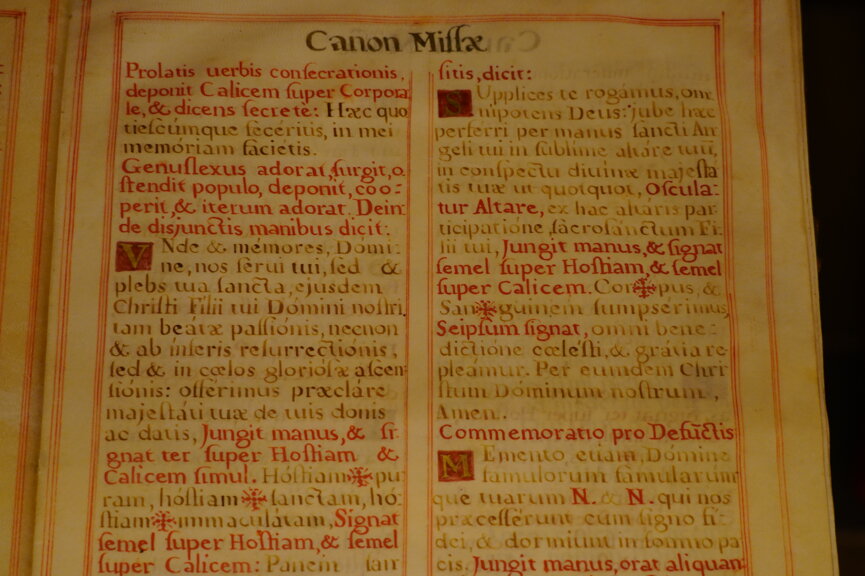 Canon Missæ
Prolatis uerbis consecrationis,
deponit Calicem super Corpora
le, & dicens secretè: Hæc quo
tiescúmque fecéritis, in mei
memóriam faciétis.
Genuflexus adorat, surgit, o
stendit populo, deponit, coo-
perit, & iterum adorat. Dein
de disjunctis manibus dicit:
VNde & mémores, Dómi-
ne, nos serui tui, sed &
plebs tua sancta, ejusdem
Christi Filii tui Dómini nostri,
tam beátæ passiónis, necnon
& ab inferis resurrectiónis,
sed & in cœlos gloriósæ ascen
siónis: offérimus præcláre
majestáti tuæ de tuis donis
ac datis, Jungit manus, & si-
gnat ter super Hostiam &
Calicem simul. Hóstiam ✠ pu
ram, hóstiam ✠ sanctam, hó-
stiam ✠ immaculátam, Signat
semel super Hostiam, & semel
super Calicem: Panem san
sitis, dicit:
SUpplices te rogámus, om
nípotens Deus: jube hæc
perferri per manus sancti An
geli tui in sublíme altáre tuum,
in conspéctu divínæ majestá
tis tuæ ut quotquot, Oscula-
tur Altare, ex hac altáris par
ticipatióne, sacrosánctum Fi-
lii tui, Jungit manus, & signat
semel super Hostiam, & semel
super Calicem. Cor ✠ pus, &
Sán ✠ guinem sumpsérimus,
Seipsum signat, omni bene-
dictióne cœlésti, & grátia re
pleámur. Per eumdem Chri
stum Dóminum nostrum,
Amen.
Commemoratio pro Defūctis
MEmento, etiam, Dómine
famulórum famularúm
que tuarum N. & N. qui nos
præcessérunt cum signo fi-
dei, & dórmiunt in somno pa
cis. Jungit manus, orat aliquan